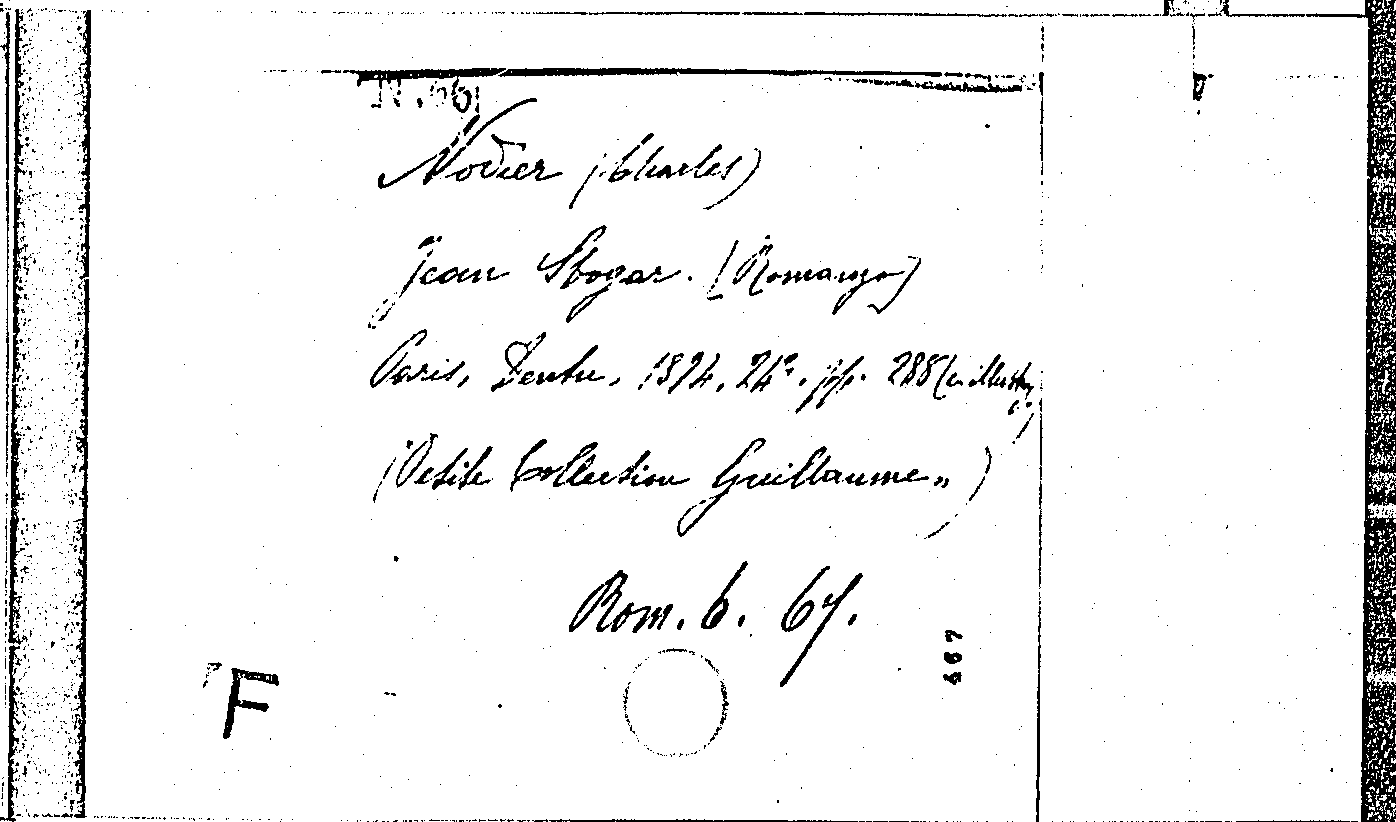 N.66
Nodier (Charles)
Jean Sbogar. [Romanzo]
Paris, Dentu, 1894. 24º. pp. 288 (con illustraz
(Petite Collection Guillaume„)
Rom. 6. 67.
467
F